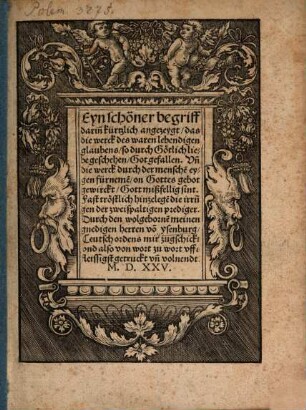 Polem. 3275.
Eyn schöner begriff
darin̄ kürtzlich angezeygt/das
die werck des waren lebendigen
glaubens/so durch Götlich lie/
be geschehen/Got gefallen. Vn̄
die werck durch der mensche̅ ey
gen fürneme̅/on Gottes gebot
gewirckt/Gott mißfellig sint.
Fast tröstlich hinzelege̅ die irru̅
gen der zweispaltigen prediger.
Durch den wolgeborne̅ meinen
gnedigen herren vo̅ Ysenburg
Teutsch ordens mir zůgschickt
vnd also von wort zu wort vff
fleissigst getruckt vn̄ volnendt
M. D. XXV.